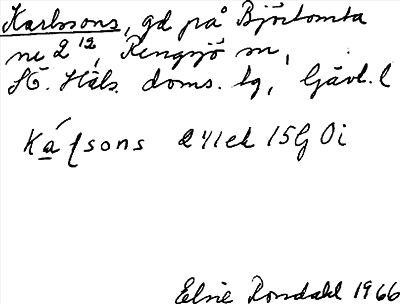 Karlssons, gd på Björtomta
nr 2 12, Rengsjö sn,
S. Häls. doms. lg, Gävl. l
Kálsons 241ek 15G 0i
Elsie Rondahl 1966